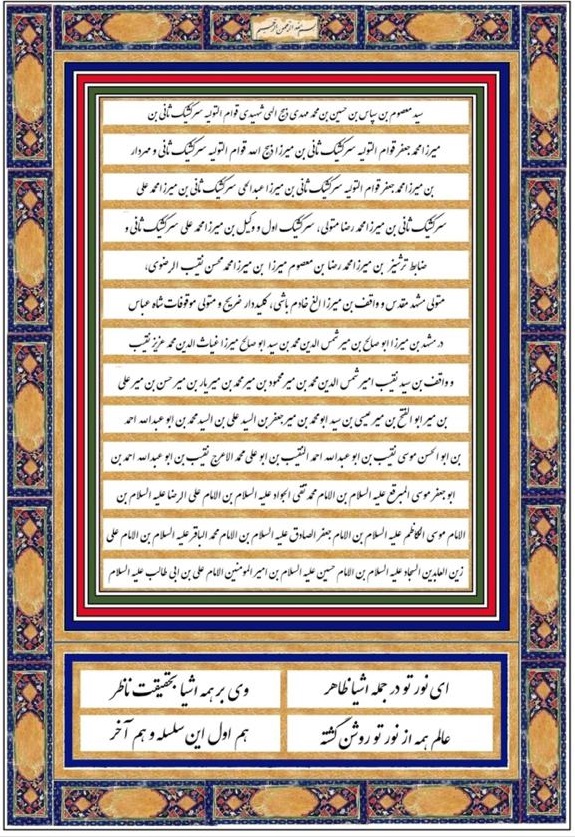 بسم الله الرحمن الرحیم
سید معصوم بن سپاس بن حسین بن محمد مهدی ذبیح الهی شهیدی قوام التولیه سرکشیک ثانی بن
میرزا محمد جعفر قوام التولیه سرکشیک ثانی بن میرزا ذبیح الله قوام التولیه سرکشیک ثانی و مهردار
بن میرزا محمد جعفر قوام التولیه سرکشیک ثانی بن میرزا عبدالحی سرکشیک ثانی بن میرزا محمد علی
سرکشیک ثانی بن میرزا محمد رضا متولی، سرکشیک اول و وکیل بن میرزا محمد علی سرکشیک ثانی و
ضابط ترشیز بن میرزا محمد رضا بن معصوم میرزا بن میرزا محمد محسن نقیب الرضوی،
متولی مشهد مقدس و واقف بن میرزا الغ خادم باشی، کلیددار ضریح و متولی موقوفات شاه عباس
در مشهد بن میرزا ابو صالح بن میر شمس الدین محمد بن سید ابو صالح میرزا غیاث الدین محمد عزیز نقیب
و واقف بن سید نقیب امیر شمس الدین محمد بن میر محمود بن میر محمد بن میر یار بن میر حسن بن میر علی
بن میر ابو الفتح بن میر عیسی بن سید ابو محمد بن میر جعفر بن السید علی بن السید محمد بن ابو عبدالله احمد
بن ابو الحسن موسی نقیب بن ابو عبدالله احمد النقیب بن ابو علی محمد الاعرج نقیب بن ابو عبدالله احمد بن
ابو جعفر موسی المبرقع علیه السلام بن الامام محمد تقی الجواد علیه السلام بن الامام علی الرضا علیه السلام بن
الامام موسی الکاظم علیه السلام بن الامام جعفر الصادق علیه السلام بن الامام محمد الباقر علیه السلام بن الامام علی
زین العابدین السجاد علیه السلام بن الامام حسین علیه السلام بن امیر المومنین الامام علی بن ابی طالب علیه السلام
ای نور تو در جمله اشیا ظاهر وی بر همه اشیا بحقیقت ناظر
عالم همه از نور تو روشن گشته هم اول این سلسله و هم آخر